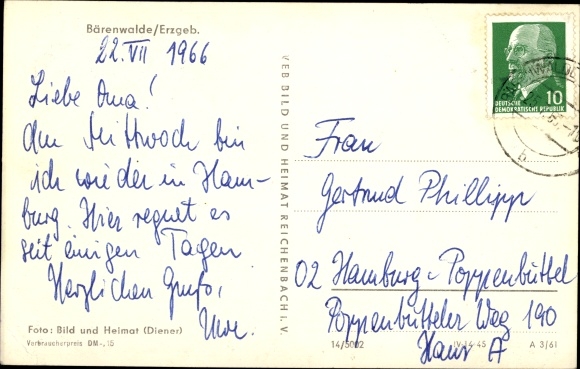 Bärenwalde/Erzgeb.
22.VII 1966
Liebe Oma!
Am Mittwoch bin
ich wieder in Ham-
burg. Hier regnet es
seit einigen Tagen
Herzlichen Gruß,
Uwe.
Foto: Bild und Heimat (Diener)
Verbraucherpreis DM -,15
VEB BILD UND HEIMAT REICHENBACH i. V.
10
DEUTSCHE
DEMOKRATISCHE REPUBLIK
Frau
Gertrud Phillipp
02 Hamburg-Poppenbüttel
Poppenbütteler Weg 190
Haus A
14/5002 IV-14-45 A 3/61